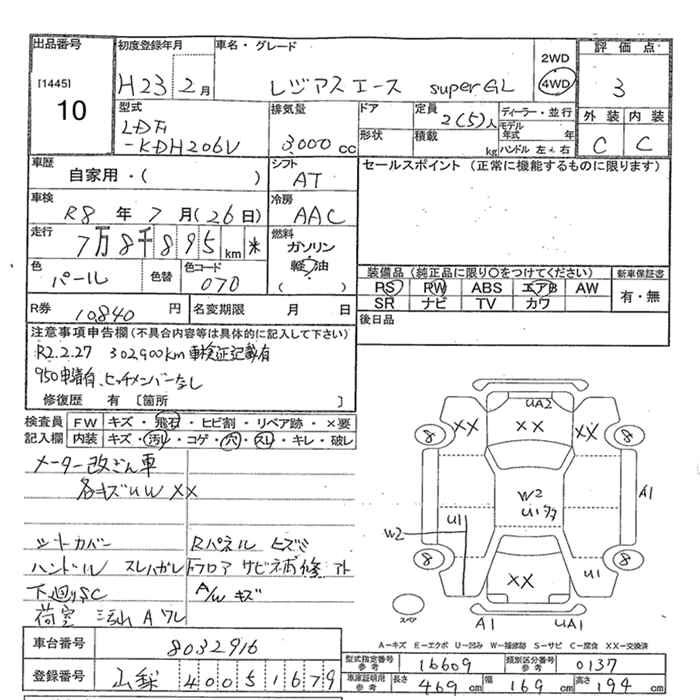 出品番号
[1445]
10
初度登録年月
H23 2月
車名・グレード
レジアスエース superGL
2WD
4WD
評価点
3
外装 内装
C C
型式
LDF
-KDH206V
排気量
3,000 cc
ドア
形状
定員
2(5)人
積載
kg
ディーラー・並行
モデル年式 年
ハンドル 左・右
車歴
自家用・( )
シフト
AT
セールスポイント (正常に機能するものに限ります)
車検
R8 年 7 月(26日)
冷房
AAC
走行
7万8千895 km *
燃料
ガソリン
軽油
( )
色
パール
色替
色コード
070
装備品 (純正品に限り○をつけてください)
PS PW ABS エアB AW
SR ナビ TV カワ
新車保証書
有・無
R券
10840 円
名変期限 月 日
後日品
注意事項申告欄 (不具合内容等は具体的に記入して下さい)
R2.2.27 302,900km 車検証記載有
950申請有、ヒッチメンバーなし
修復歴 有 [箇所 ]
検査員
記入欄
FW キズ・飛石・ヒビ割・リペア跡・×要
内装 キズ・汚れ・コゲ・穴・スレ・キレ・破レ
メーター改ざん車
各キズUW XX
シートカバー
ハンドル スレハガレ
下廻りSC
荷室 汚れ A ワレ
Rパネル ヒズミ
Fフロア サビ補修アト
A/W キズ
UA2
XX XX XX
8 8
W2
U1
A1
U1
W2
8 8
XX
U1
スペア
A1 UA1
A−キズ E−エクボ U−凹み W−補修跡 S−サビ C−腐食 XX−交換済
車台番号
8032916
登録番号
山梨 400 5 1679
型式指定番号
参考
16609
類別区分番号
参考
0137
車庫証明用
参考
長さ 469 cm 幅 169 cm 高さ 194 cm